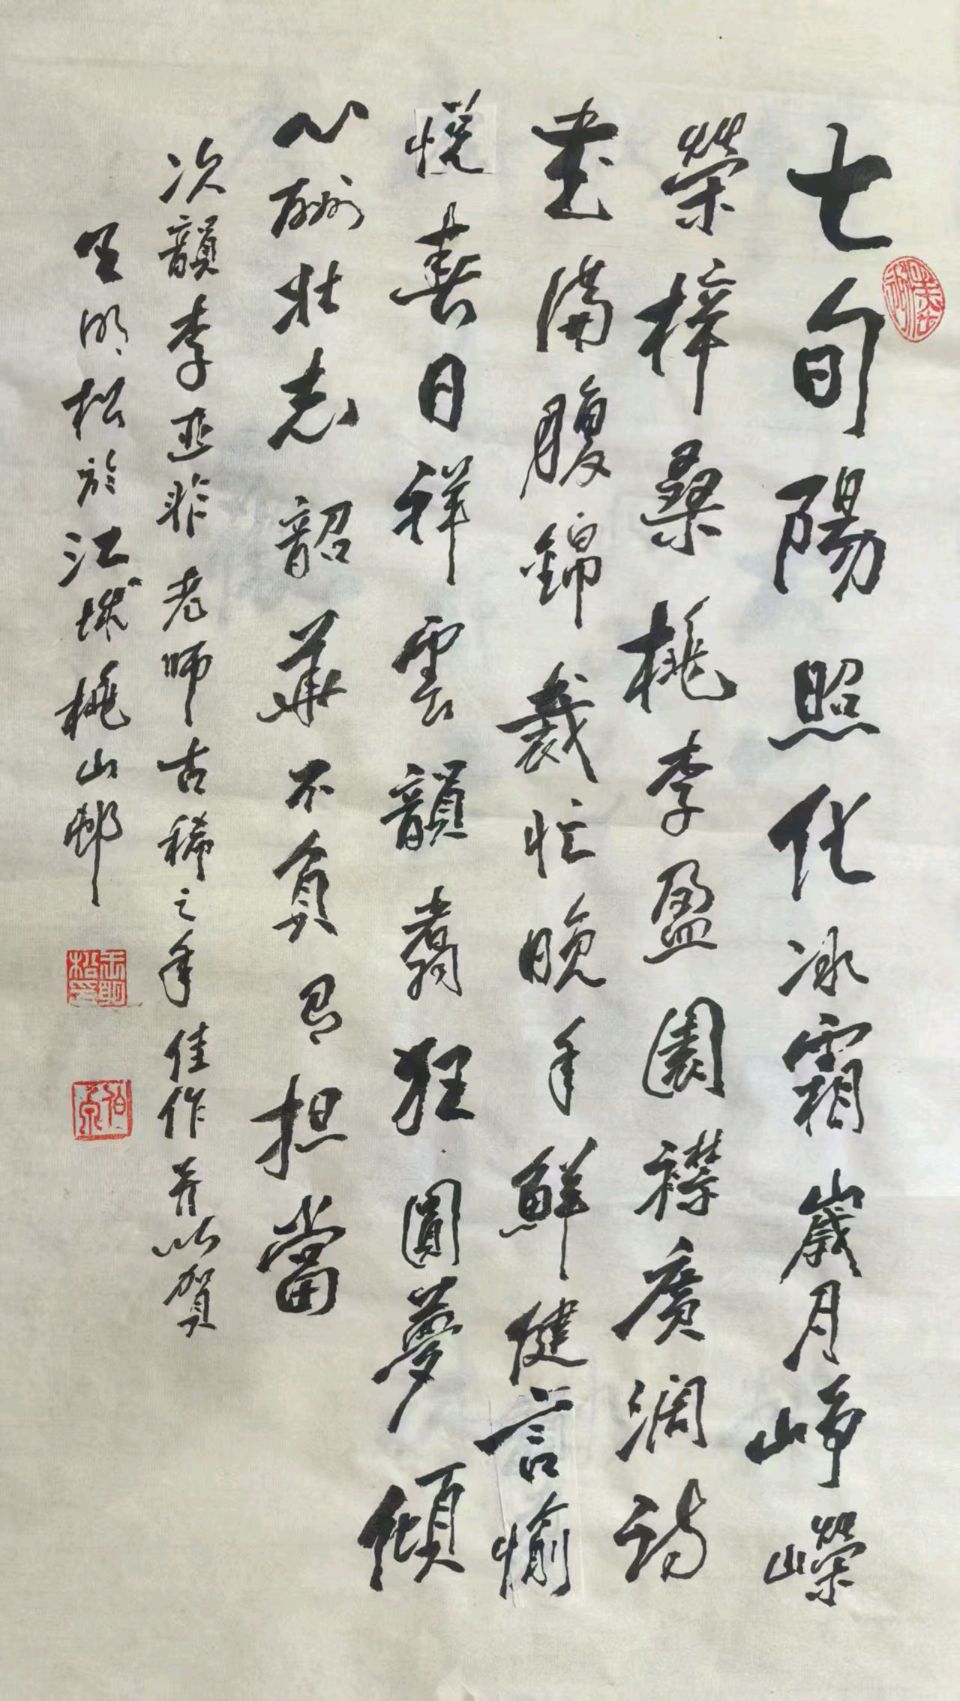 七旬陽照化冰霜歲月崢嶸
榮梓桑桃李盈園襟廣濶詩
書滿腹錦裁忙晚年鮮健言愉
悅喜日祥雲韻翥狂圓夢傾
心酬壯志韶華不負有担當
次韻李亞非老師古稀之年佳作并以賀
王明松於江城桃山邨